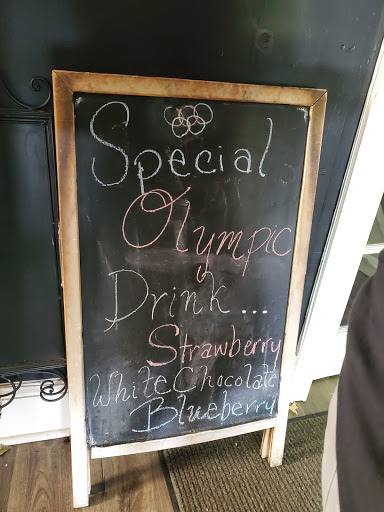 Special
Olympic
Drink...
Strawberry
White Chocolate
Blueberry